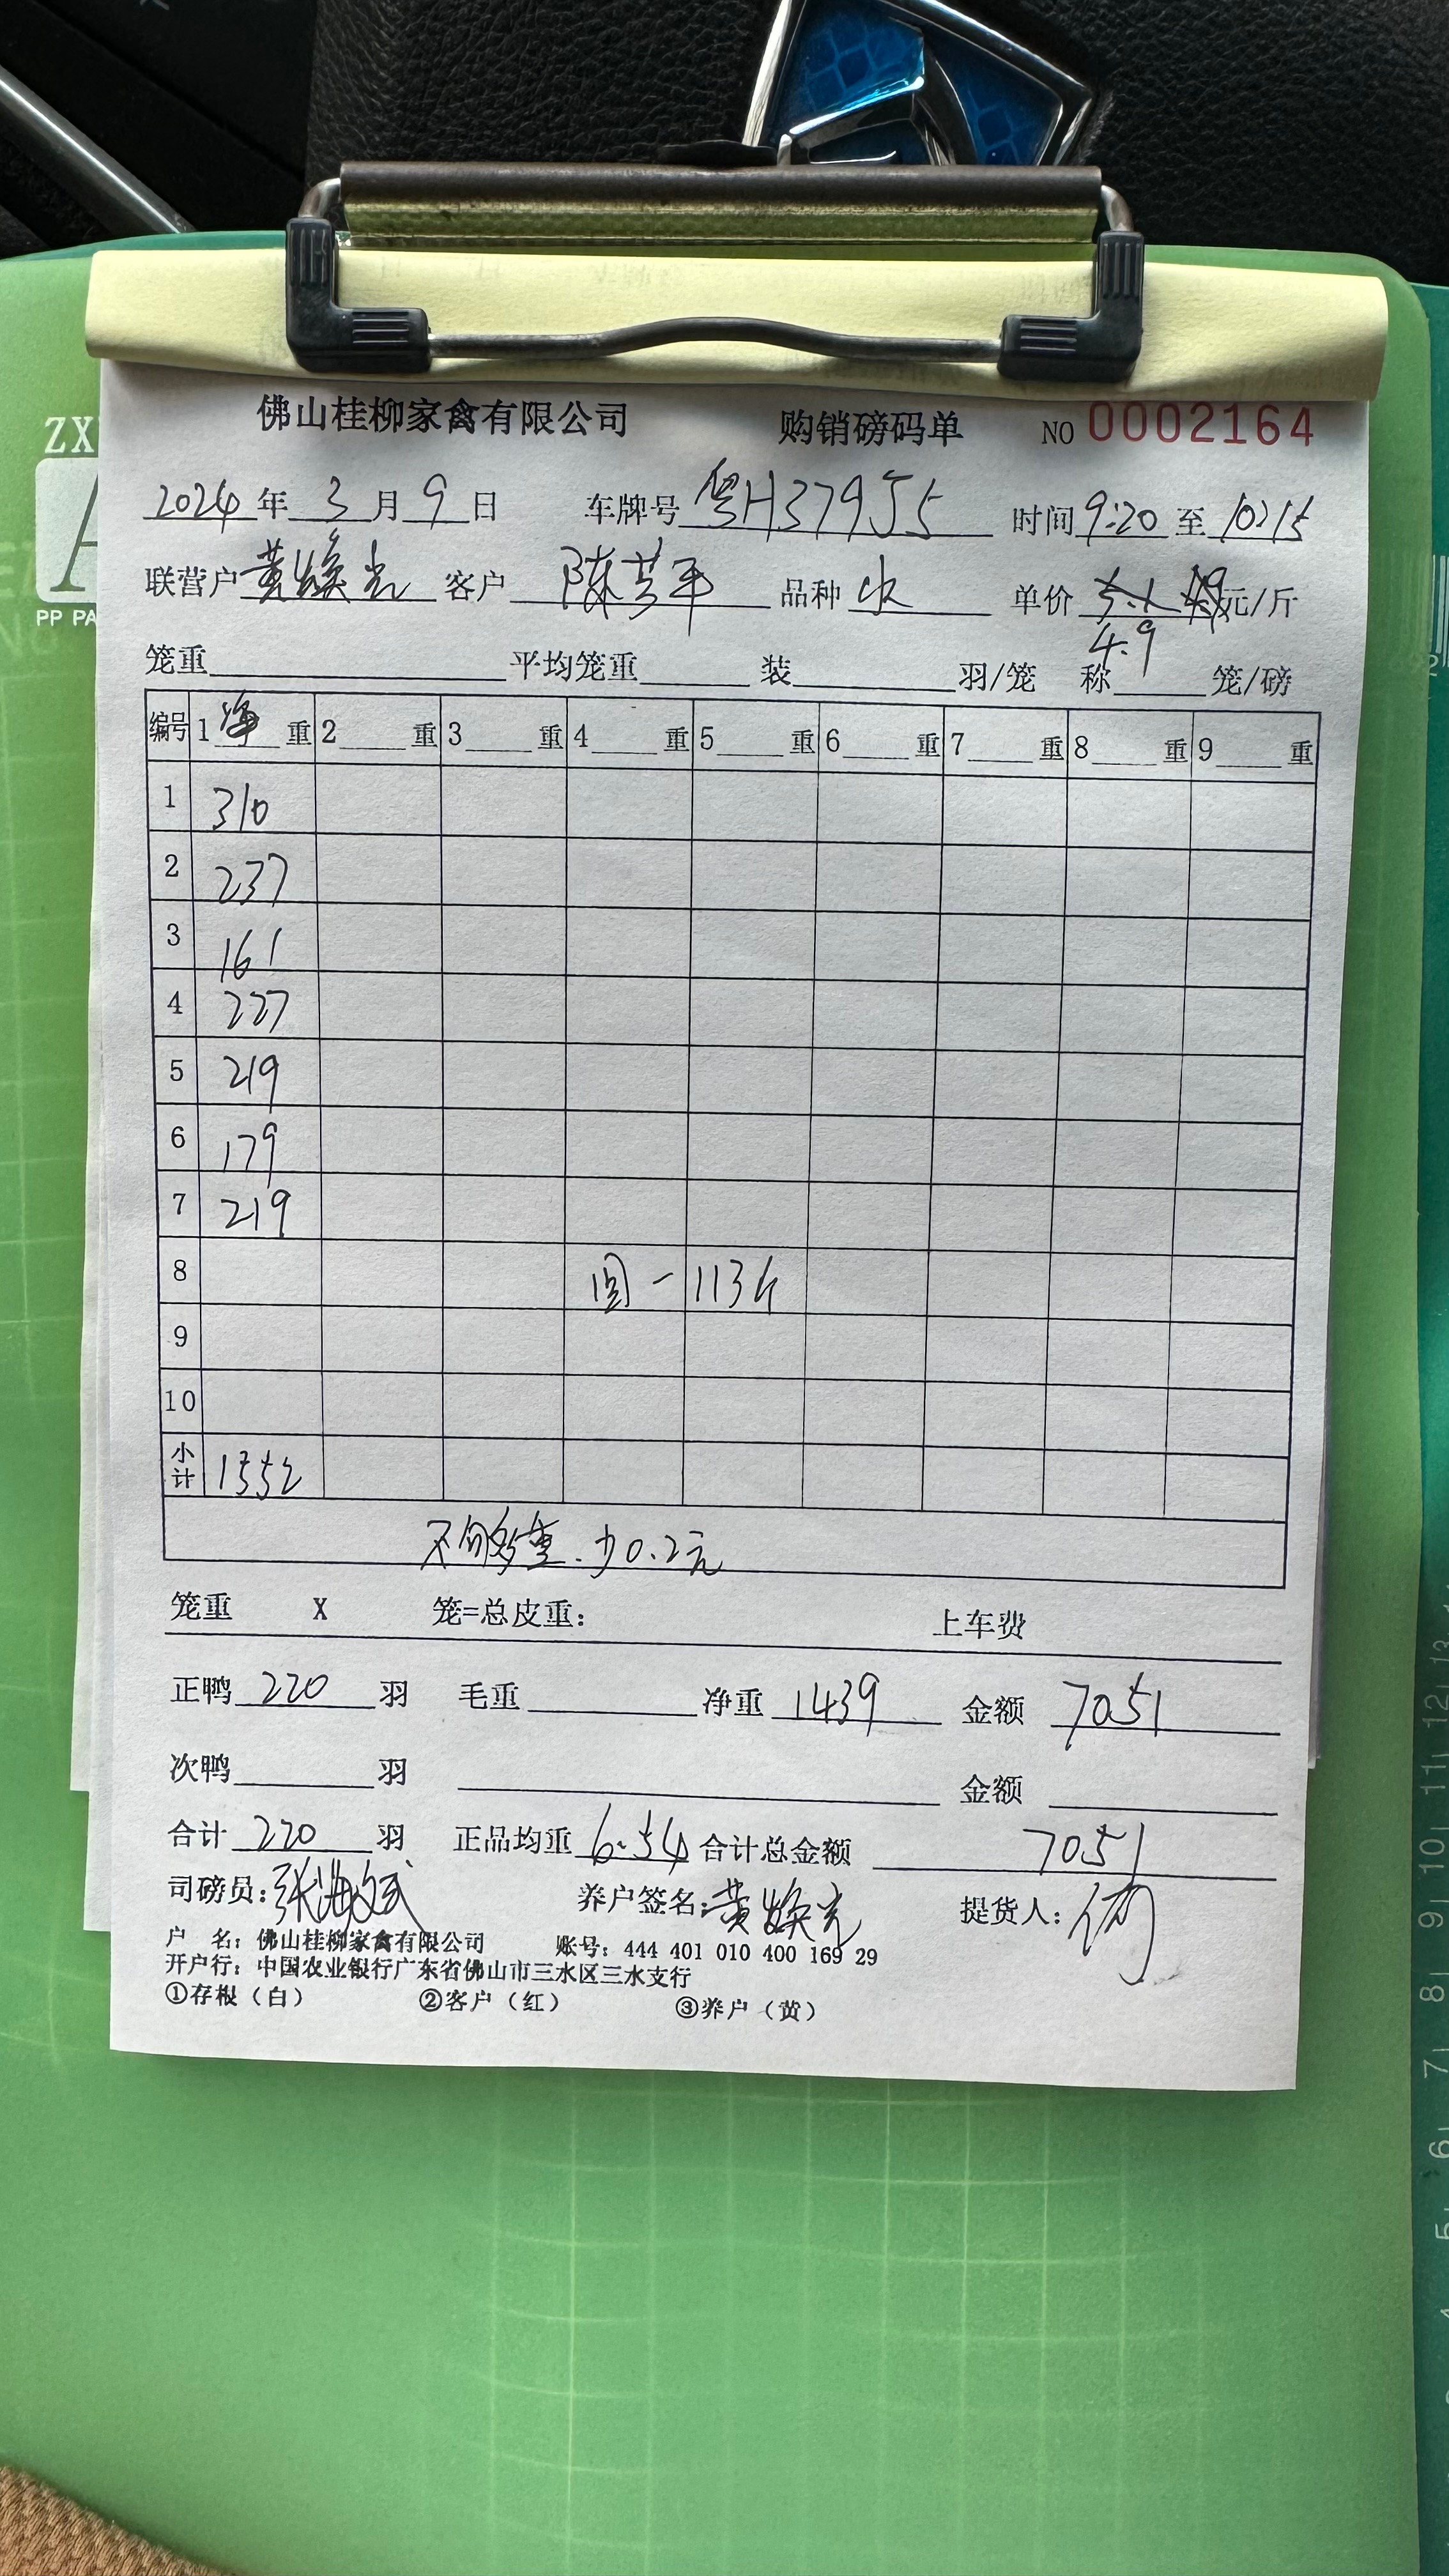 ZX
PP PA
佛山桂柳家禽有限公司 购销磅码单 NO 0002164
2024年3月9日 车牌号粤H379J5 时间9:20至10:15
联营户黄焕光 客户 品种 单价 5.1 4.9元/斤
4.9
笼重 平均笼重 装 羽/笼 称 笼/磅
编号 1净重 2 重 3 重 4 重 5 重 6 重 7 重 8 重 9 重
1 310
2 237
3 161
4 227
5 219
6 179
7 219
8 - 113斤
9
10
小计 1552
不够重.少0.2元
笼重 X 笼=总皮重: 上车费
正鸭220羽 毛重 净重1439 金额 7051
次鸭 羽 金额
合计220羽 正品均重6.54 合计总金额 7051
司磅员:张海斌 养户签名:黄焕光 提货人:
户 名: 佛山桂柳家禽有限公司 账号: 444 401 010 400 169 29
开户行: 中国农业银行广东省佛山市三水区三水支行
①存根（白） ②客户（红） ③养户（黄）